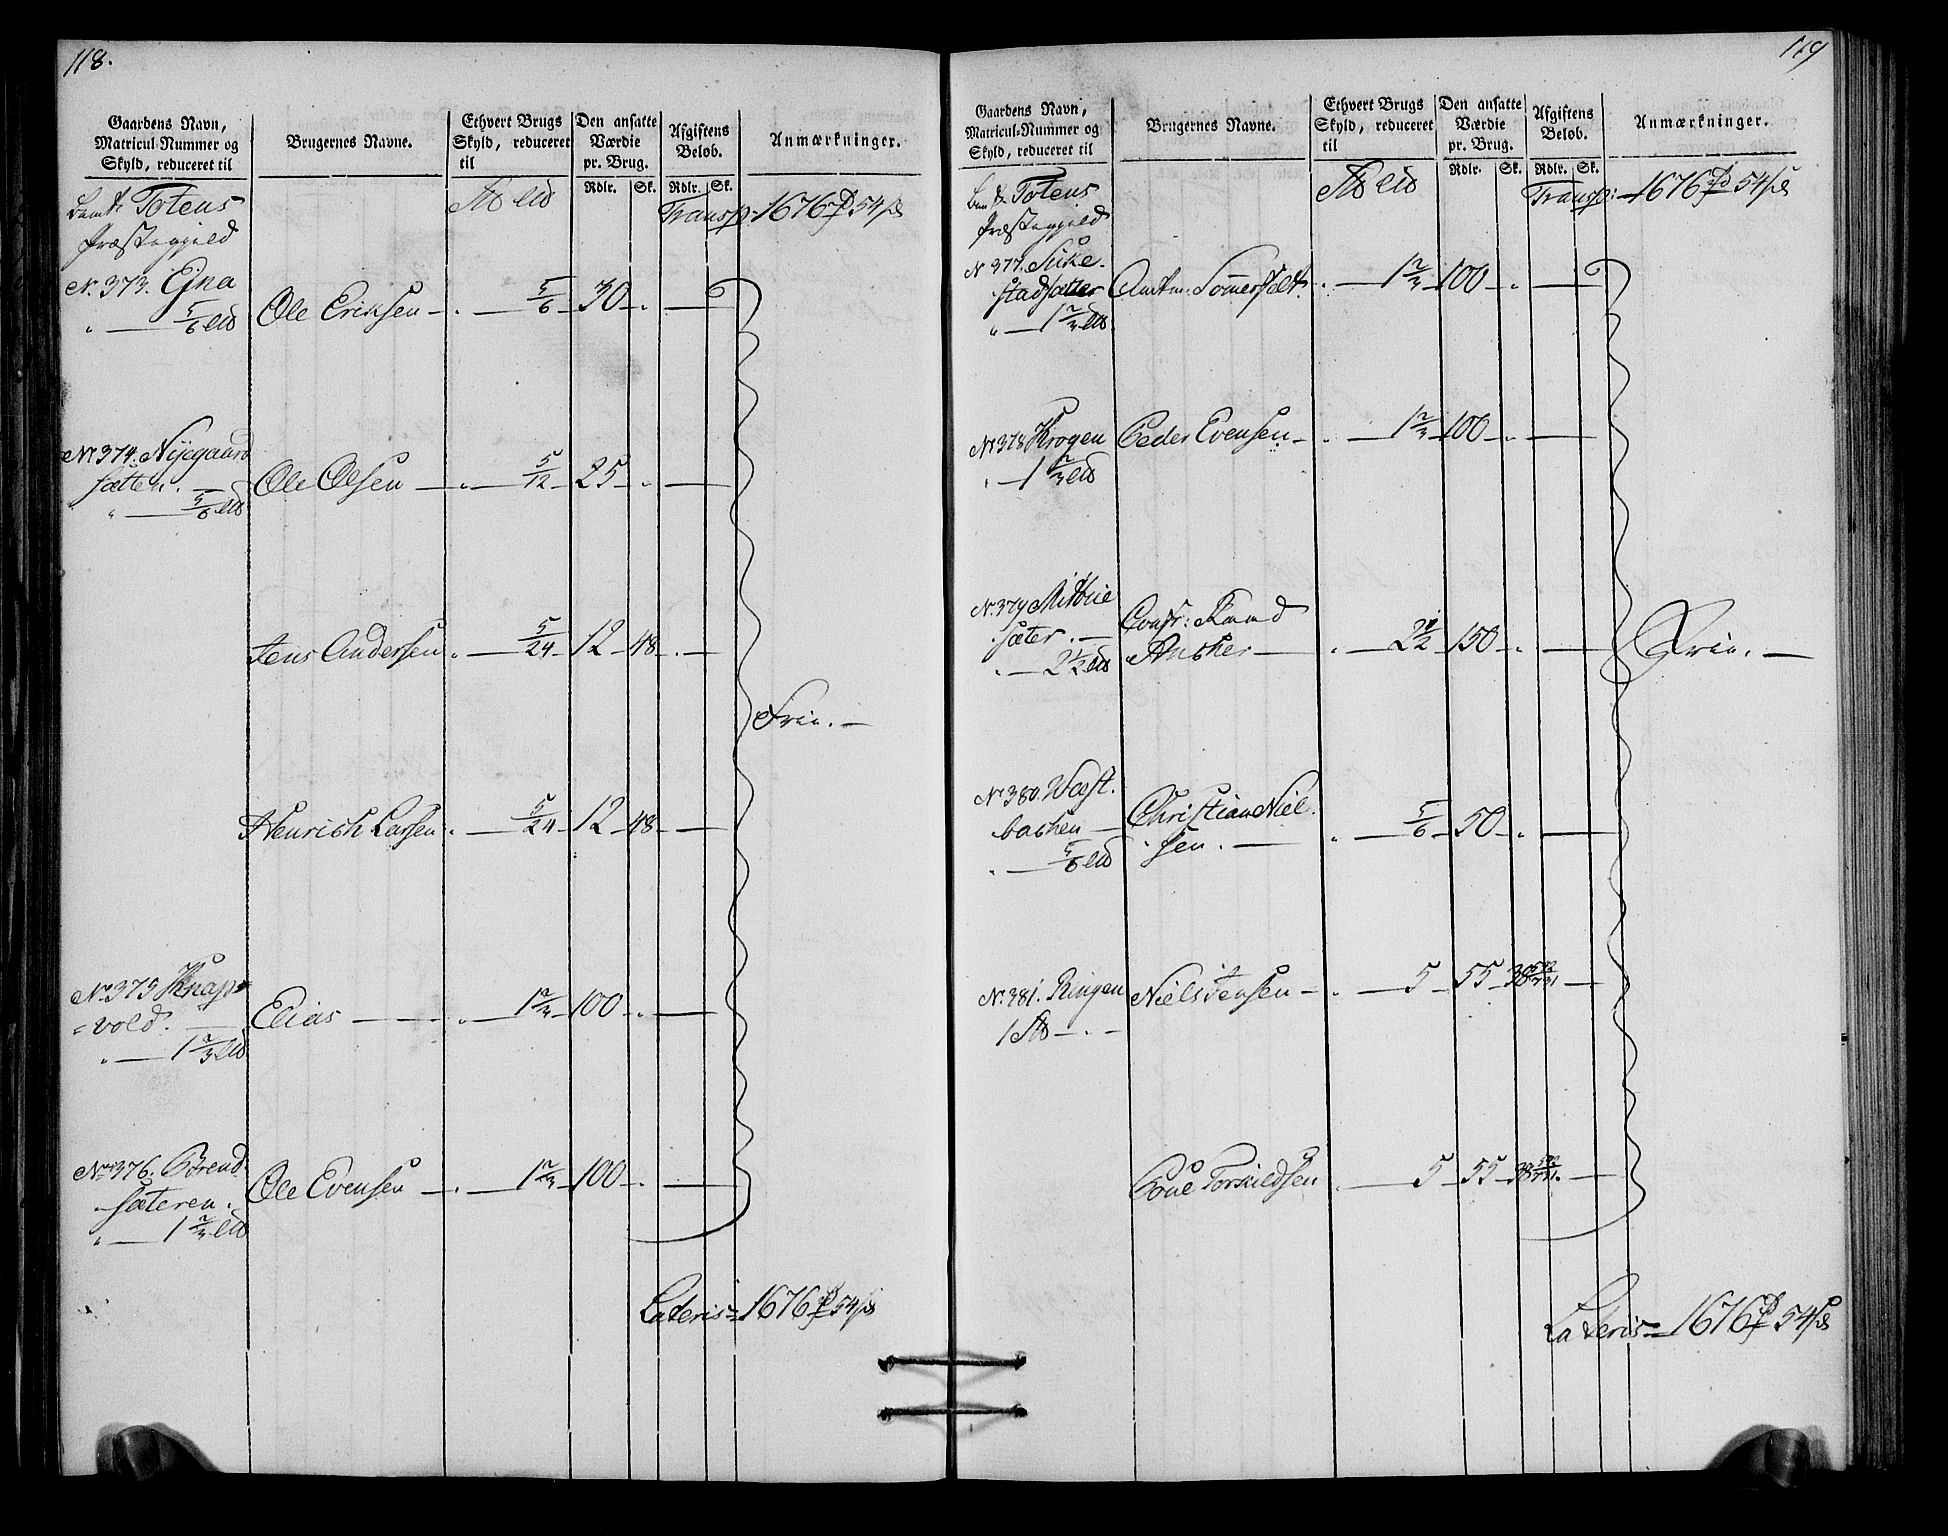 118.
Gaardens Navn, Matricul-Nummer og Skyld, reduceret til
Brugernes Navne.
Ethvert Brugs Skyld, reduceret til
Den ansatte Værdie pr. Brug.
Afgiftens Beløb.
Anmærkninger.
Rdlr. Sk. Rdlr. Sk.
Totens
Præstegjeld
Transp: 1676 54
N. 373. Ejna
5/6
Ole Eriksen 5/6 30
No 374. Nyegaard
sætten.
5/6
Ole Olsen 5/12 25
Jens Andersen 5/24 12 48
Frie.
Henrich Larsen 5/24 12 48
No 375 Knap-
-vold.
1 2/3
Elias 1 2/3 100
No 376. Brend-
sæteren.
1 2/3
Ole Evensen 1 2/3 100
Lateris 1676 54
119
Gaardens Navn, Matricul-Nummer og Skyld, reduceret til
Brugernes Navne.
Ethvert Brugs Skyld, reduceret til
Den ansatte Værdie pr. Brug.
Afgiftens Beløb.
Anmærkninger.
Rdlr. Sk. Rdlr. Sk.
Totens
Præstegjeld
Transp: 1676 54
N 377.
stadsæter
1 2/3
Amtm. Sommerfeldt. 1 2/3 100
No 378 Krogen
1 2/3
Peder Evensen 1 2/3 100
No. 379
sæter.
2 1/2
Ancher 2 1/2 150
Frie.
No 380. West-
bachen
5/6
Christian Niel-
sen. 5/6 50
No. 381. Ringen
1
Niels Jensen 5 55
Poul Torkildsen 5 55
Lateris 1676 54